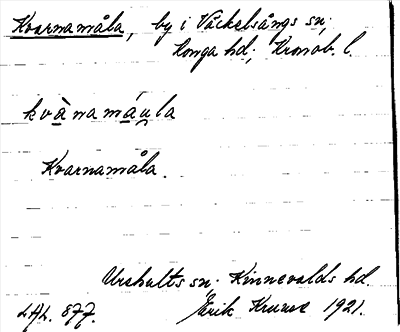 Kvarnamåla, by i Väckelsångs sn;
Konga hd; Kronob. l.
kvànamáu̯la
Kvarnamåla.
Urshults sn. Kinnevalds hd.
LAL. 877. Erik Kruuse 1921.